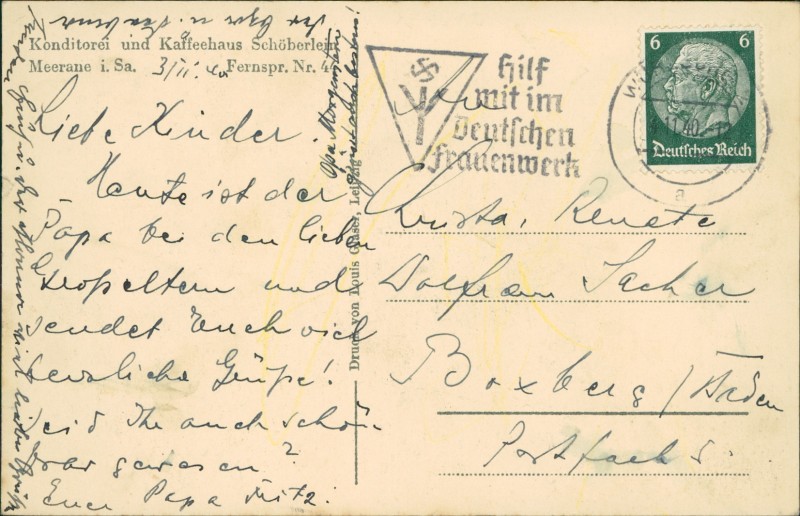 Konditorei und Kaffeehaus Schöberlein
Meerane i. Sa. 3/II. 40 Fernspr. Nr. 4
Liebe Kinder.
Heute ist der
Papa bei den lieben
Großeltern und
sendet Euch viel
herzliche Grüße!
Seid Ihr auch schön
brav gewesen?
Euer Papa Fritz.
Opa Morgenstern
grüßt auch bestens!
Druck von Louis Glaser, Leipzig
Hilf
mit im
Deutschen
Frauenwerk
6 6
Deutsches Reich
a
An
Christa, Renate
Wolfram Sacher
Boxberg / Baden
Postfach 5.